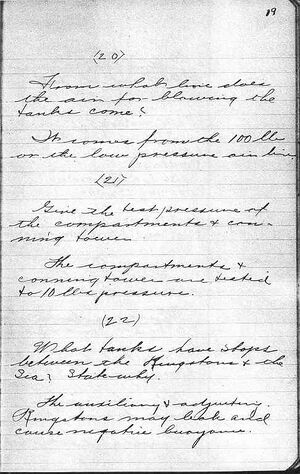 19
(20)
From what line does
the air for blowing the
tanks come?
It comes from the 100 lb
or the low pressure air line
(21)
Give the test pressure of
the compartments & con-
ning tower.
The compartments &
conning tower are tested
to 10 lbs pressure.
(22)
What tanks have stops
between the Kingstons & the
Sea? State why.
The auxiliary & adjusting.
Kingstons may leak and
cause negative buoyancy.